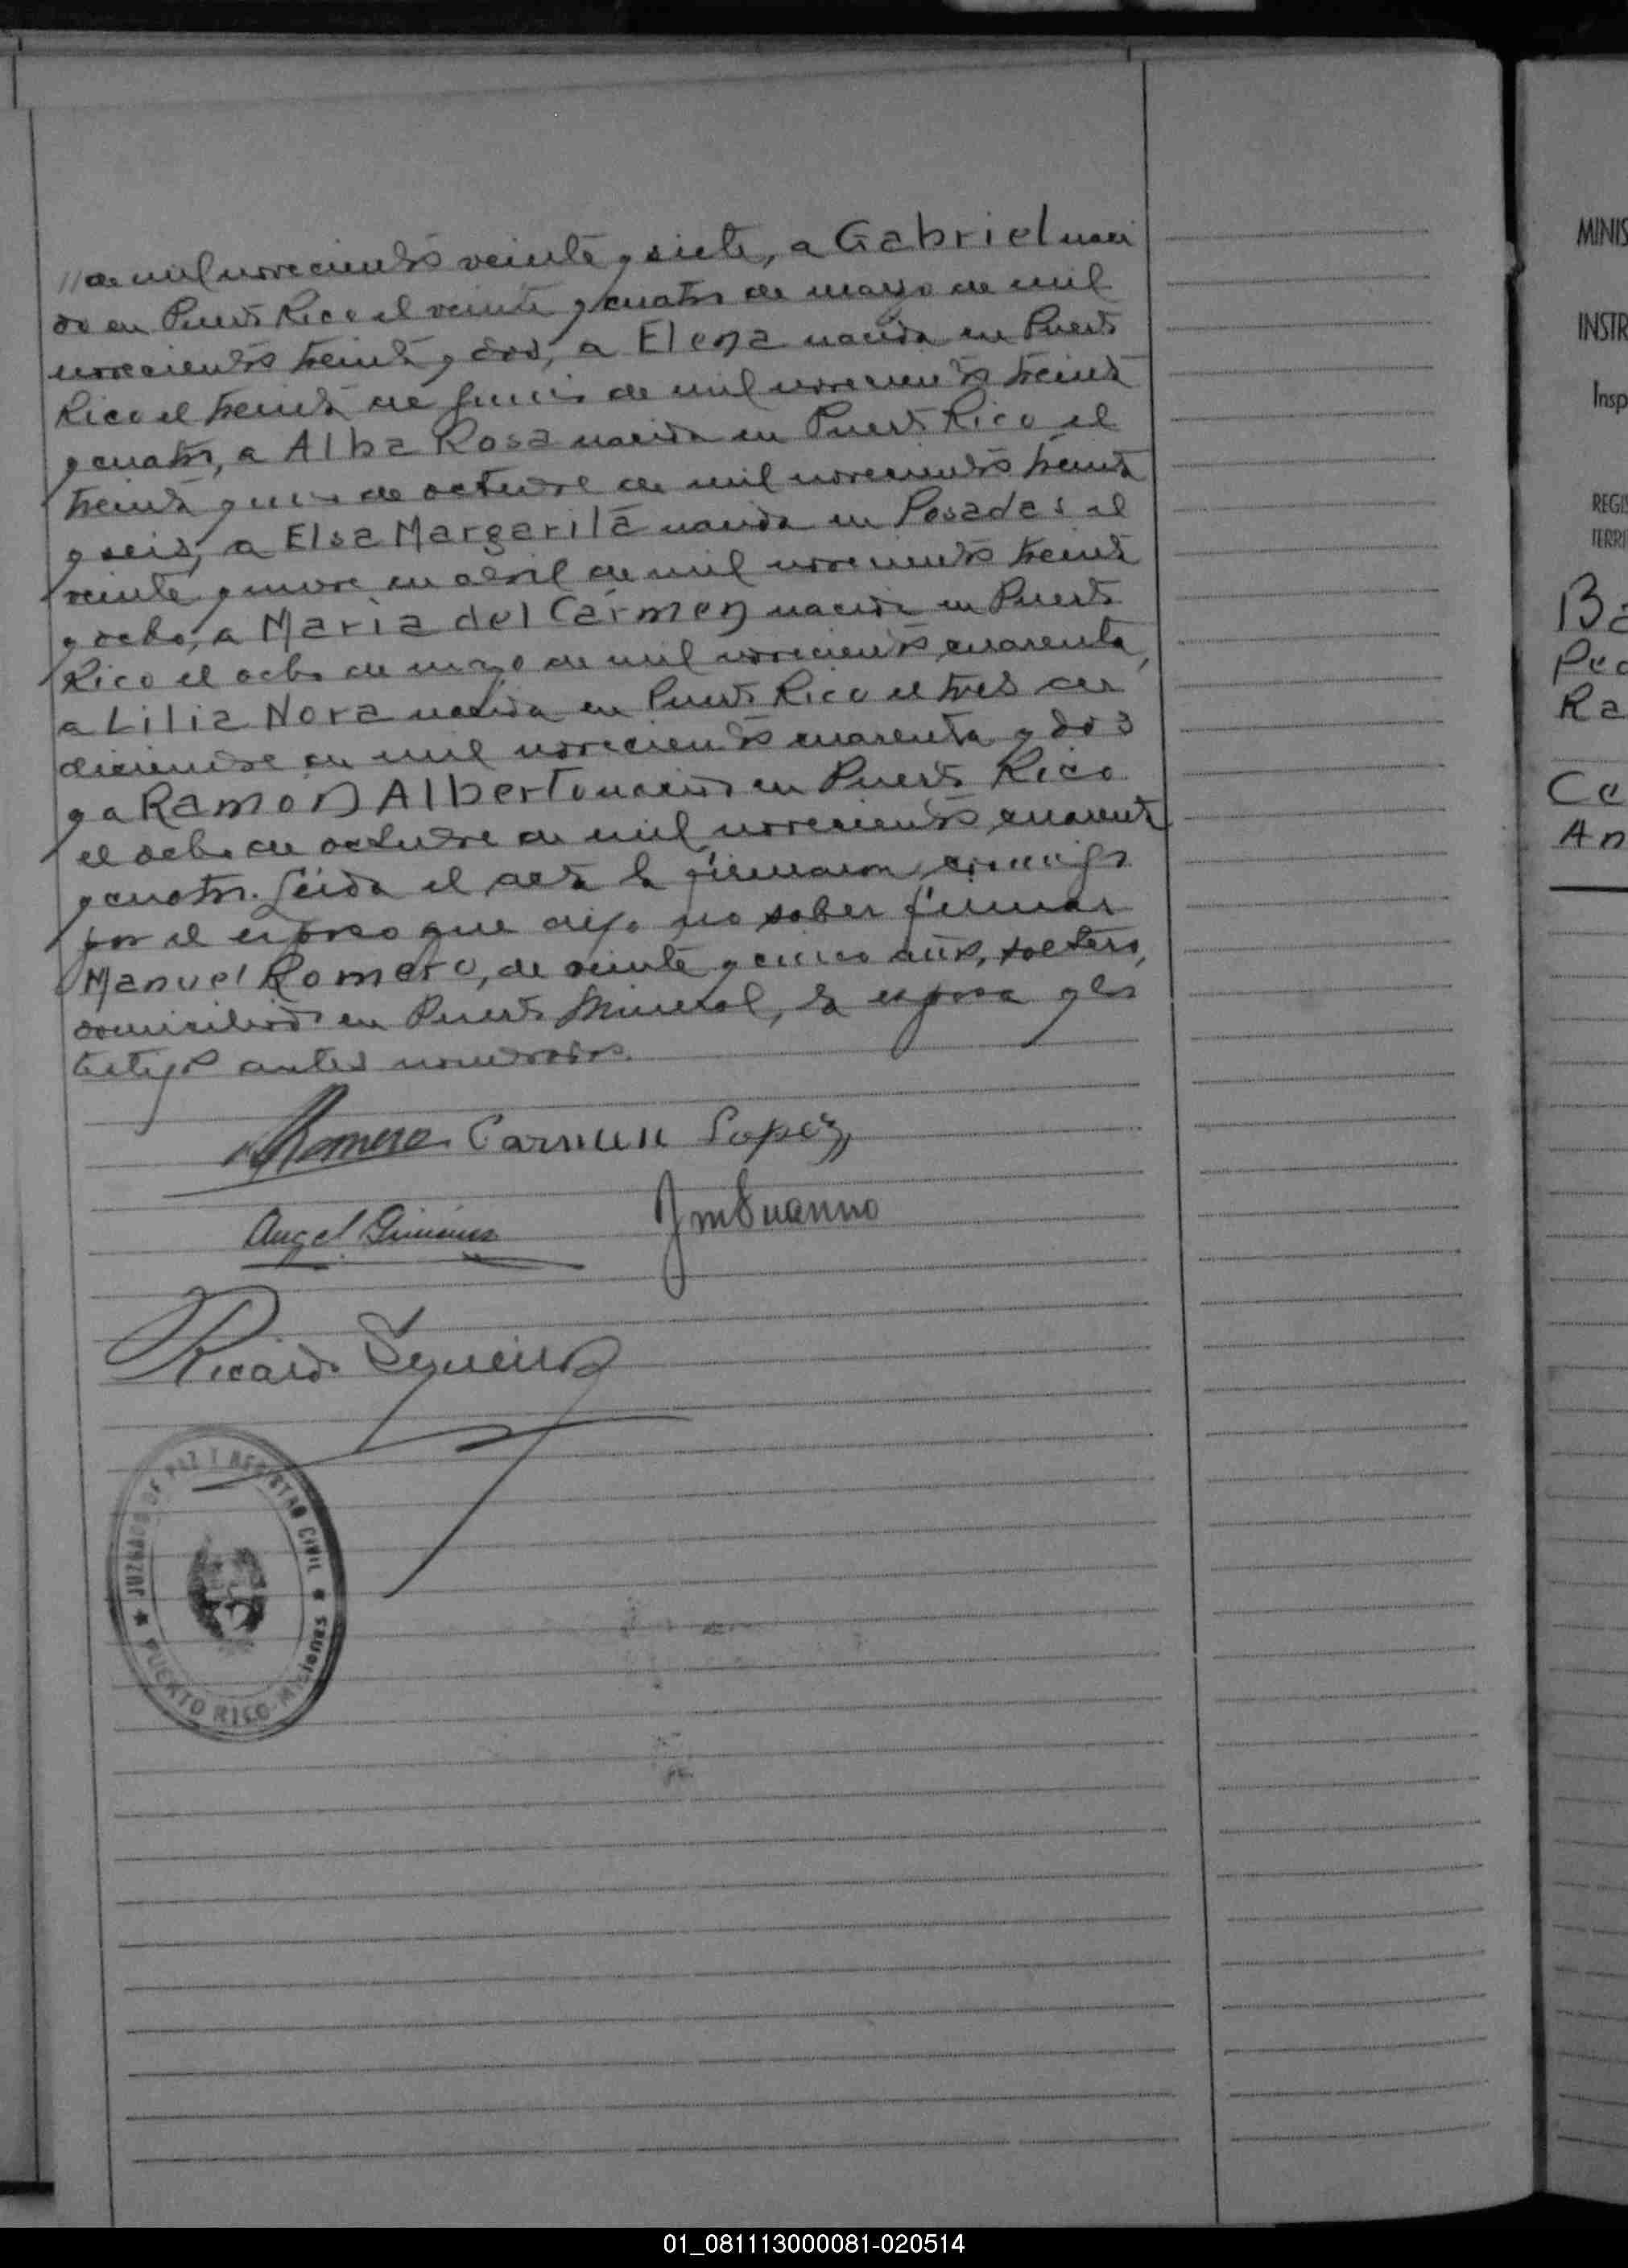 // de mil novecientos veinte y siete, a Gabriel naci
do en Puerto Rico el veinte y cuatro de mayo de mil
novecientos treinta y dos, a Elena nacida en Puerto
Rico el treinta de junio de mil novecientos treinta
y cuatro, a Alba Rosa nacida en Puerto Rico el
treinta y uno de octubre de mil novecientos treinta
y seis, a Elsa Margarita nacida en Posadas el
veinte y nueve de abril de mil novecientos treinta
y ocho, a Maria del Carmen nacida en Puerto
Rico el ocho de mayo de mil novecientos cuarenta,
a Lilia Nora nacida en Puerto Rico el tres de
diciembre de mil novecientos cuarenta y dos
y a Ramon Alberto nacido en Puerto Rico
el ocho de octubre de mil novecientos cuarenta
y cuatro. Leida el acta la firmaron conmigo
por el esposo que dijo no saber firmar
Manuel Romero, de veinte y cinco años, soltero,
domiciliado en Puerto Mineral, la esposa y los
testigos antes nombrados.
Romero Carmen Lopez
Angel Gimenez
Ricardo
JUZGADO DE PAZ Y REGISTRO CIVIL
PUERTO RICO - Misiones
MINIS
INSTR
Insp
REGIS
TERRI
Ba
Ped
Ra
Ce
An
01_081113000081-020514